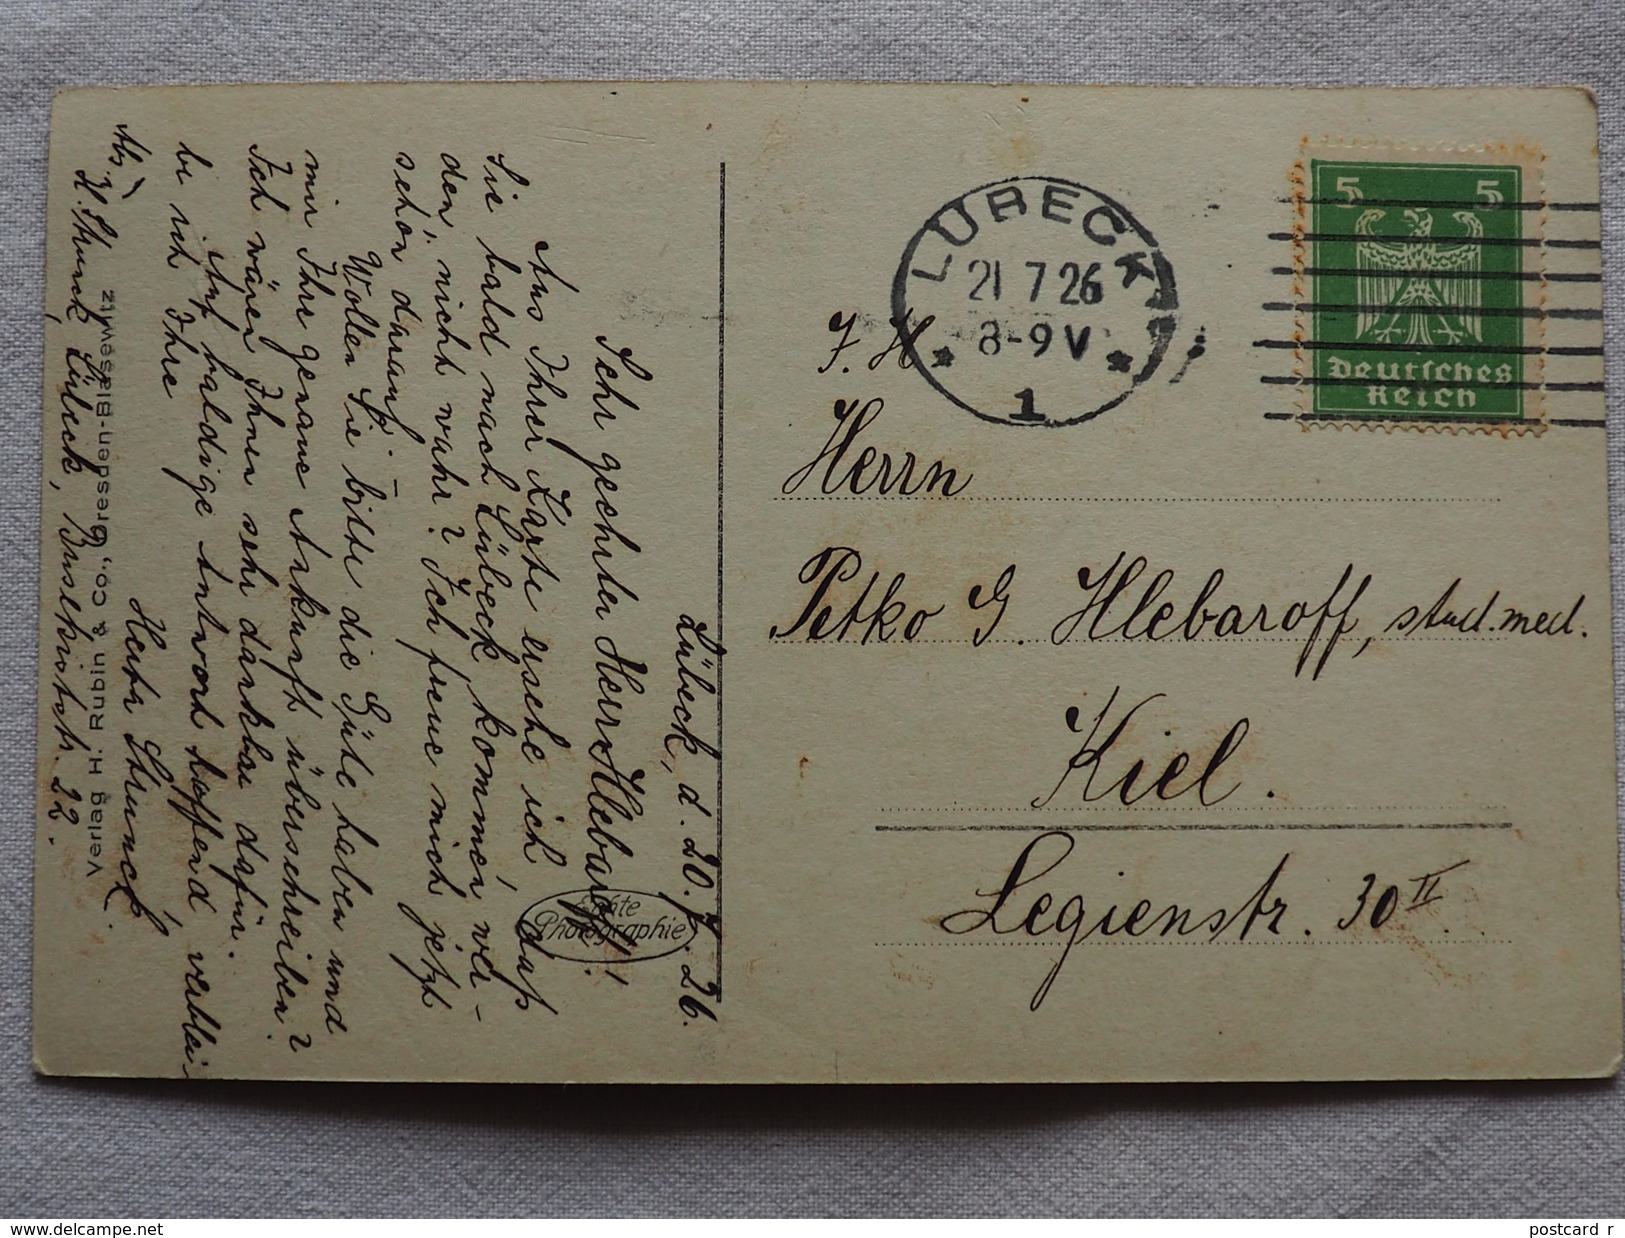 Lübeck, d. 20. 7. 26.
Sehr geehrter Herr Hlebaroff!
Aus Ihrer Karte ersehe ich, daß
Sie bald nach Lübeck kommen wer-
den, nicht wahr? Ich freue mich jetzt
schon darauf. –
Wollen Sie bitte die Güte haben und
mir Ihre genaue Ankunft überschreiben?
Ich wäre Ihnen sehr dankbar dafür.
Auf baldige Antwort hoffend, verblei-
be ich Ihre
Herta Strunck.
Abs.
H. Strunck, Lübeck, 22.
Verlag H. Rubin & Co., Dresden-Blasewitz
Echte
Photographie
LÜBECK
21 7 26
8-9 V
1
5 5
Deutsches
Reich
Herrn
Petko G. Hlebaroff, stud. med.
Kiel.
Legienstr. 30 II.
postcard_r